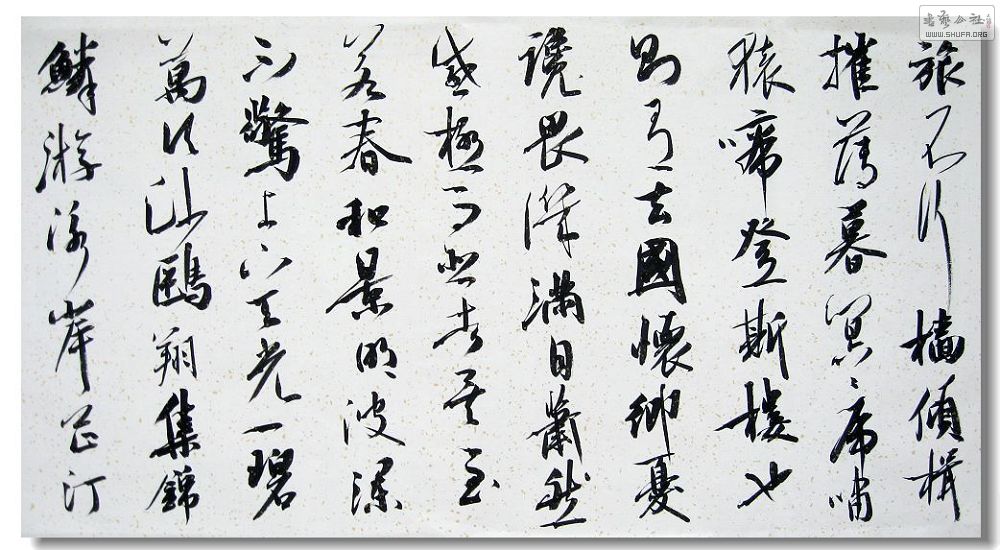 旅不行檣傾楫
摧薄暮冥冥虎嘯
猿啼登斯樓也
則有去國懷鄉憂
讒畏譏滿目蕭然
感極而悲者矣至
若春和景明波瀾
不驚上下天光一碧
萬頃沙鷗翔集錦
鱗游泳岸芷汀
書藝公社
WWW.SHUFA.ORG